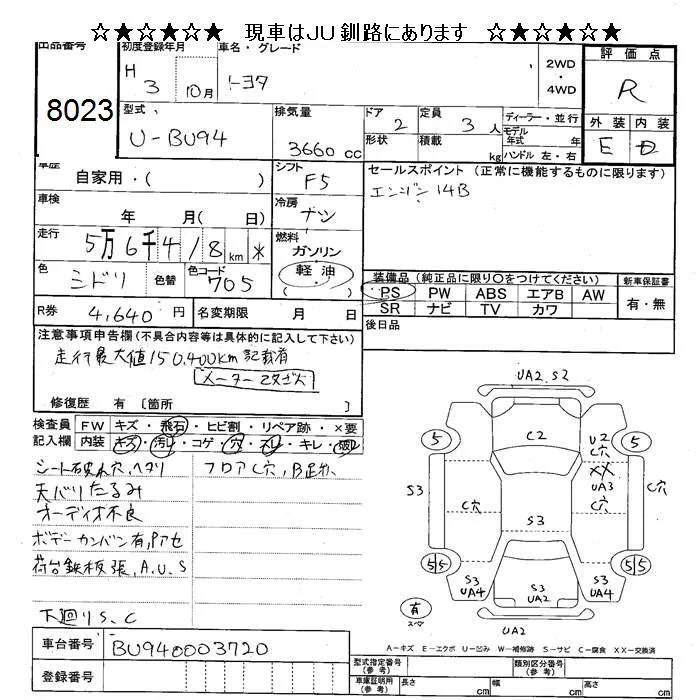 ☆★☆★☆★ 現車はJU釧路にあります ☆★☆★☆★
出品番号 8023
初度登録年月 H 3 10月
車名・グレード トヨタ
2WD・4WD
評価点 R
外装 E 内装 D
型式 U-BU94
排気量 3660 cc
ドア 2 形状
定員 3 人 積載 kg
ディーラー・並行
モデル年式 年
ハンドル 左・右
車歴 自家用・( )
シフト F5
セールスポイント (正常に機能するものに限ります)
エンジン 14B
車検 年 月( 日)
冷房 ナシ
走行 5万6千418km *
燃料 ガソリン 軽油 ( )
色 ミドリ 色替 色コード 705
装備品 (純正品に限り○をつけてください)
PS PW ABS エアB AW
SR ナビ TV カワ
新車保証書 有・無
R券 4,640 円 名変期限 月 日
後日品
注意事項申告欄(不具合内容等は具体的に記入して下さい)
走行最大値150,400km 記載有
メーター改ざん
修復歴 有 [箇所 ]
検査員記入欄
FW キズ・飛石・ヒビ割・リペア跡・×要
内装 キズ・汚れ・コゲ・穴・スレ・キレ・破レ
シート破れ穴、ヘタリ フロアC穴,
天バリたるみ
オーディオ不良
ボデーカンバン有,
荷台鉄板張,A,U,S
下廻りS、C
UA2 S2
5 C2 U2 C穴 5
XX UA3
S3 C穴 S3 C穴 C穴
5 5 S3 UA4 S3 UA2 S3 UA4 5 5
有 スペア
UA2
A－キズ E－エクボ U－凹み W－補修跡 S－サビ C－腐食 XX－交換済
車台番号 BU940003720
登録番号
型式指定番号(参考) 類別区分番号(参考)
車庫証明用(参考) 長さ cm 幅 cm 高さ cm